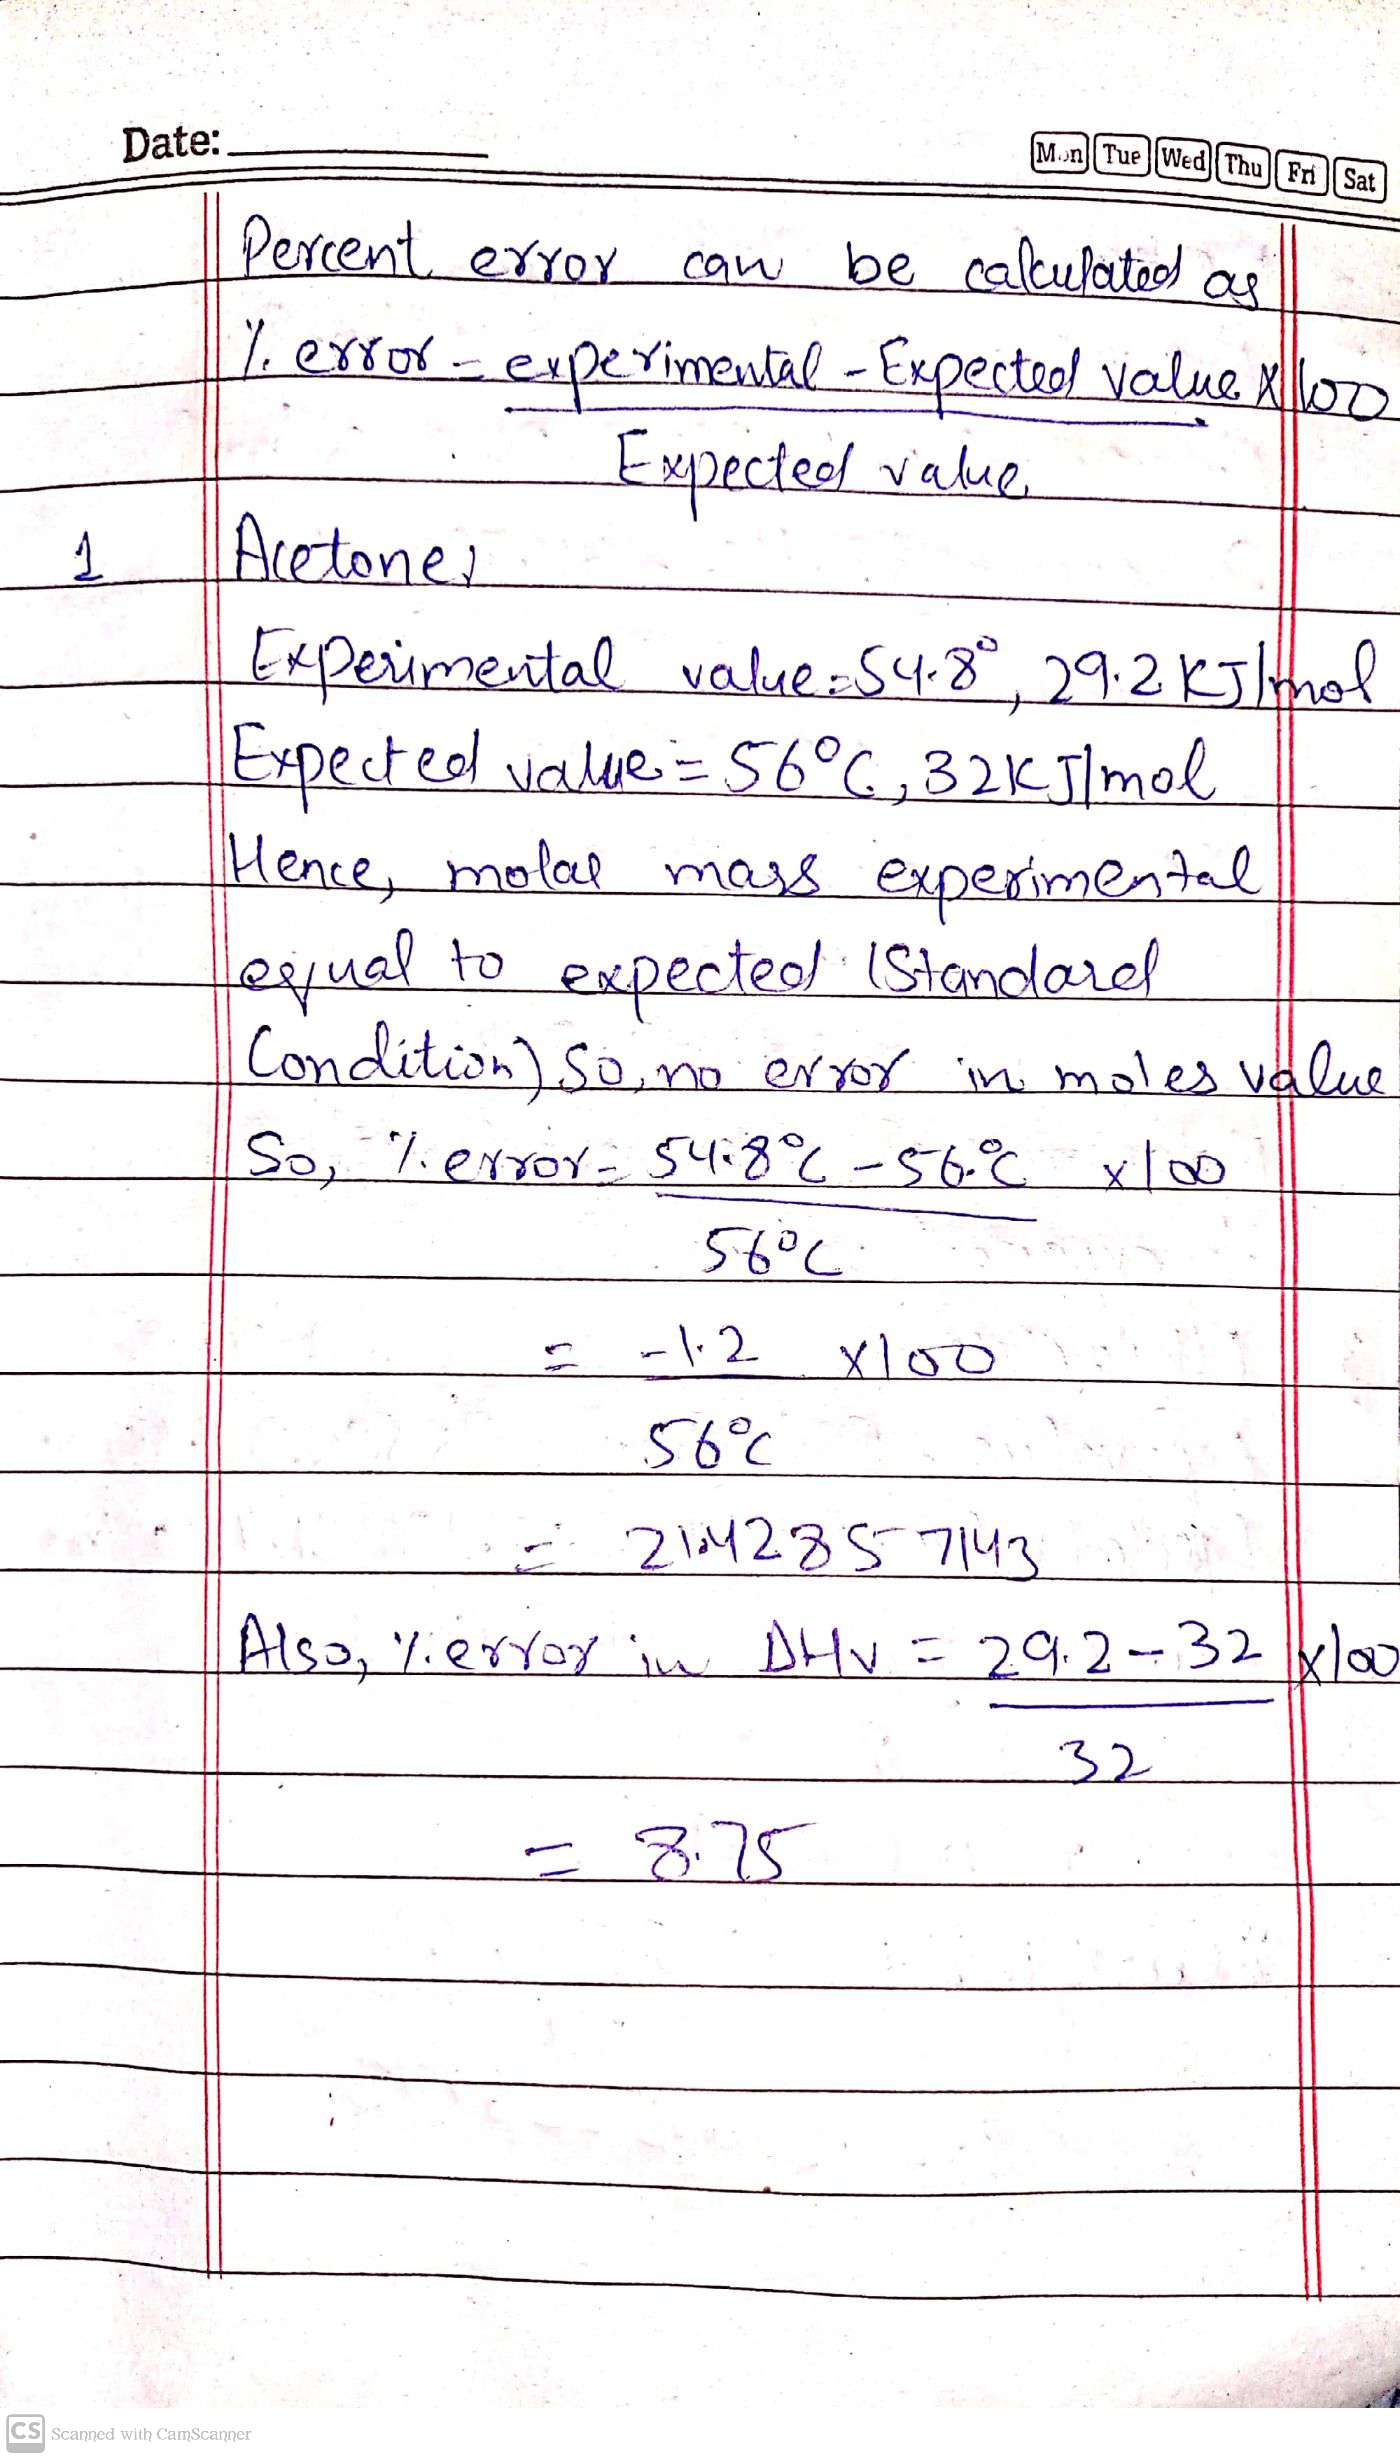 Date:
Mon Tue Wed Thu Fri Sat
Percent error can be calculated as
% error = experimental - Expected value x 100
Expected value
1 Acetone,
Experimental value = 54.8°, 29.2 KJ/mol
Expected value = 56°C, 32KJ/mol
Hence, molar mass experimental
equal to expected (Standard
Condition) So, no error in moles value
So, % error = 54.8°C - 56°C x100
56°C
= -1.2 x100
56°C
= 21.42857143
Also, % error in ΔHv = 29.2 - 32 x100
32
= 8.75
CS Scanned with CamScanner